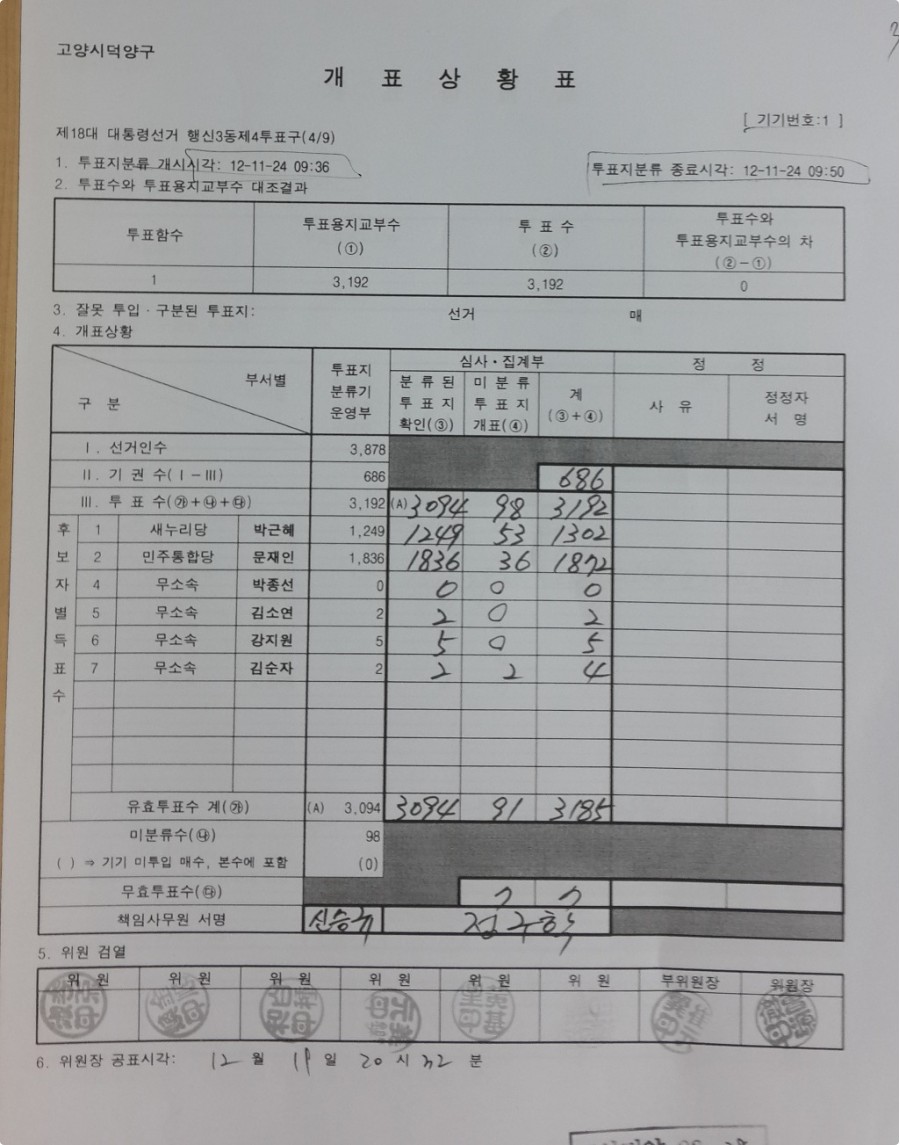 고양시덕양구
개 표 상 황 표
[ 기기번호:1 ]
제18대 대통령선거 행신3동제4투표구(4/9)
1. 투표지분류 개시시각: 12-11-24 09:36 투표지분류 종료시각: 12-11-24 09:50
2. 투표수와 투표용지교부수 대조결과
투표함수 투표용지교부수 (①) 투 표 수 (②) 투표수와 투표용지교부수의 차 (②-①)
1 3,192 3,192 0
3. 잘못 투입·구분된 투표지: 선거 매
4. 개표상황
구 분 부서별 투표지 분류기 운영부 심사·집계부 정 정
분 류 된 투 표 지 확인(③) 미 분 류 투 표 지 개표(④) 계 (③+④) 사 유 정정자 서 명
Ⅰ. 선거인수 3,878
Ⅱ. 기 권 수(Ⅰ-Ⅲ) 686 686
Ⅲ. 투 표 수(㉮+㉯+㉰) 3,192 (A) 3094 98 3192
후보자별득표수
1 새누리당 박근혜 1,249 1249 53 1302
2 민주통합당 문재인 1,836 1836 36 1872
4 무소속 박종선 0 0 0 0
5 무소속 김소연 2 2 0 2
6 무소속 강지원 5 5 0 5
7 무소속 김순자 2 2 2 4
유효투표수 계(㉮) (A) 3,094 3094 91 3185
미분류수(㉯) 98
( ) ⇒ 기기 미투입 매수, 본수에 포함 (0)
무효투표수(㉰) 7 7
책임사무원 서명
5. 위원 검열
위 원 위 원 위 원 위 원 위 원 위 원 부위원장 위원장
6. 위원장 공표시각: 12 월 19 일 20 시 32 분